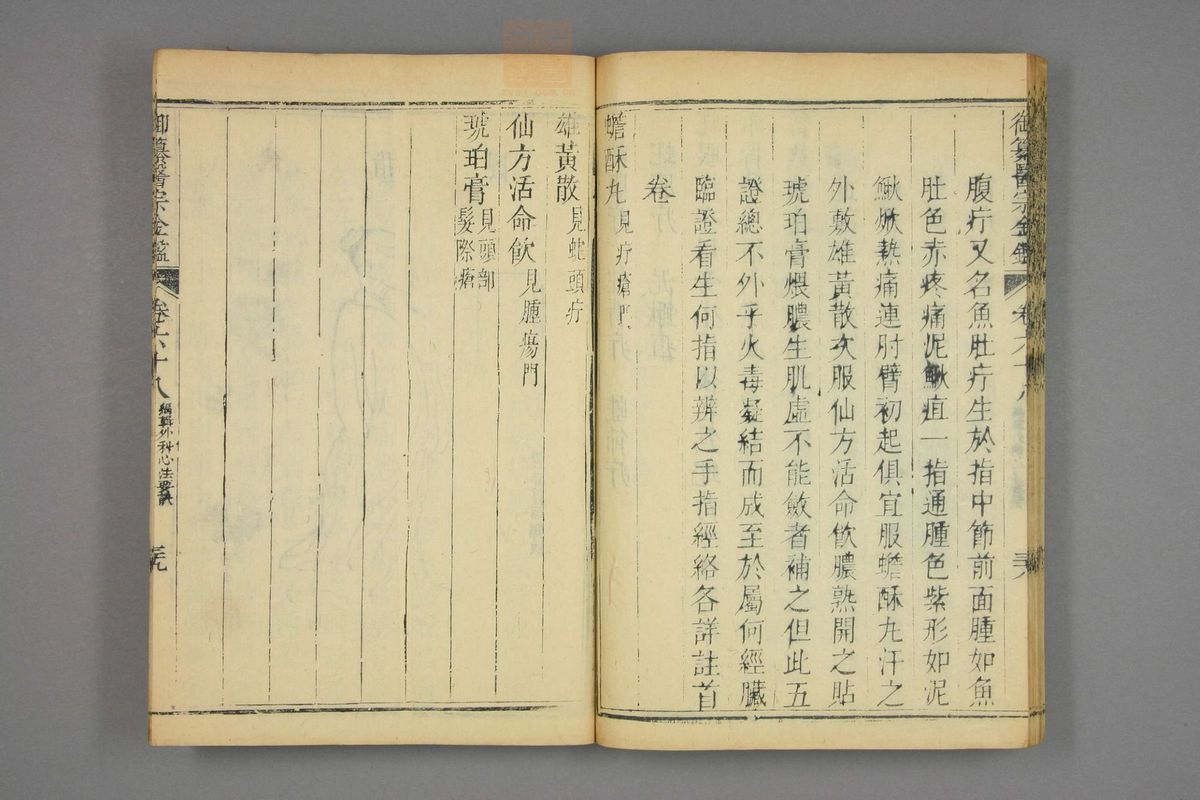 御纂醫宗金鑑
卷六十八
三六
腹疔又名魚肚疔生於指中節前面腫如魚
肚色赤疼痛泥鰍疽一指通腫色紫形如泥
鰍焮熱痛連肘臂初起俱宜服蟾酥丸汗之
外敷雄黃散次服仙方活命飲膿熟開之貼
琥珀膏煨膿生肌虛不能斂者補之但此五
證總不外乎火毒凝結而成至於屬何經臟
臨證看生何指以辨之手指經絡各詳註首
卷
蟾酥丸見疔瘡門
雄黃散見蛇頭疔
仙方活命飲見腫瘍門
琥珀膏見頭部
髮際瘡
御纂醫宗金鑑
卷六十八
編輯外科心法要訣
三九